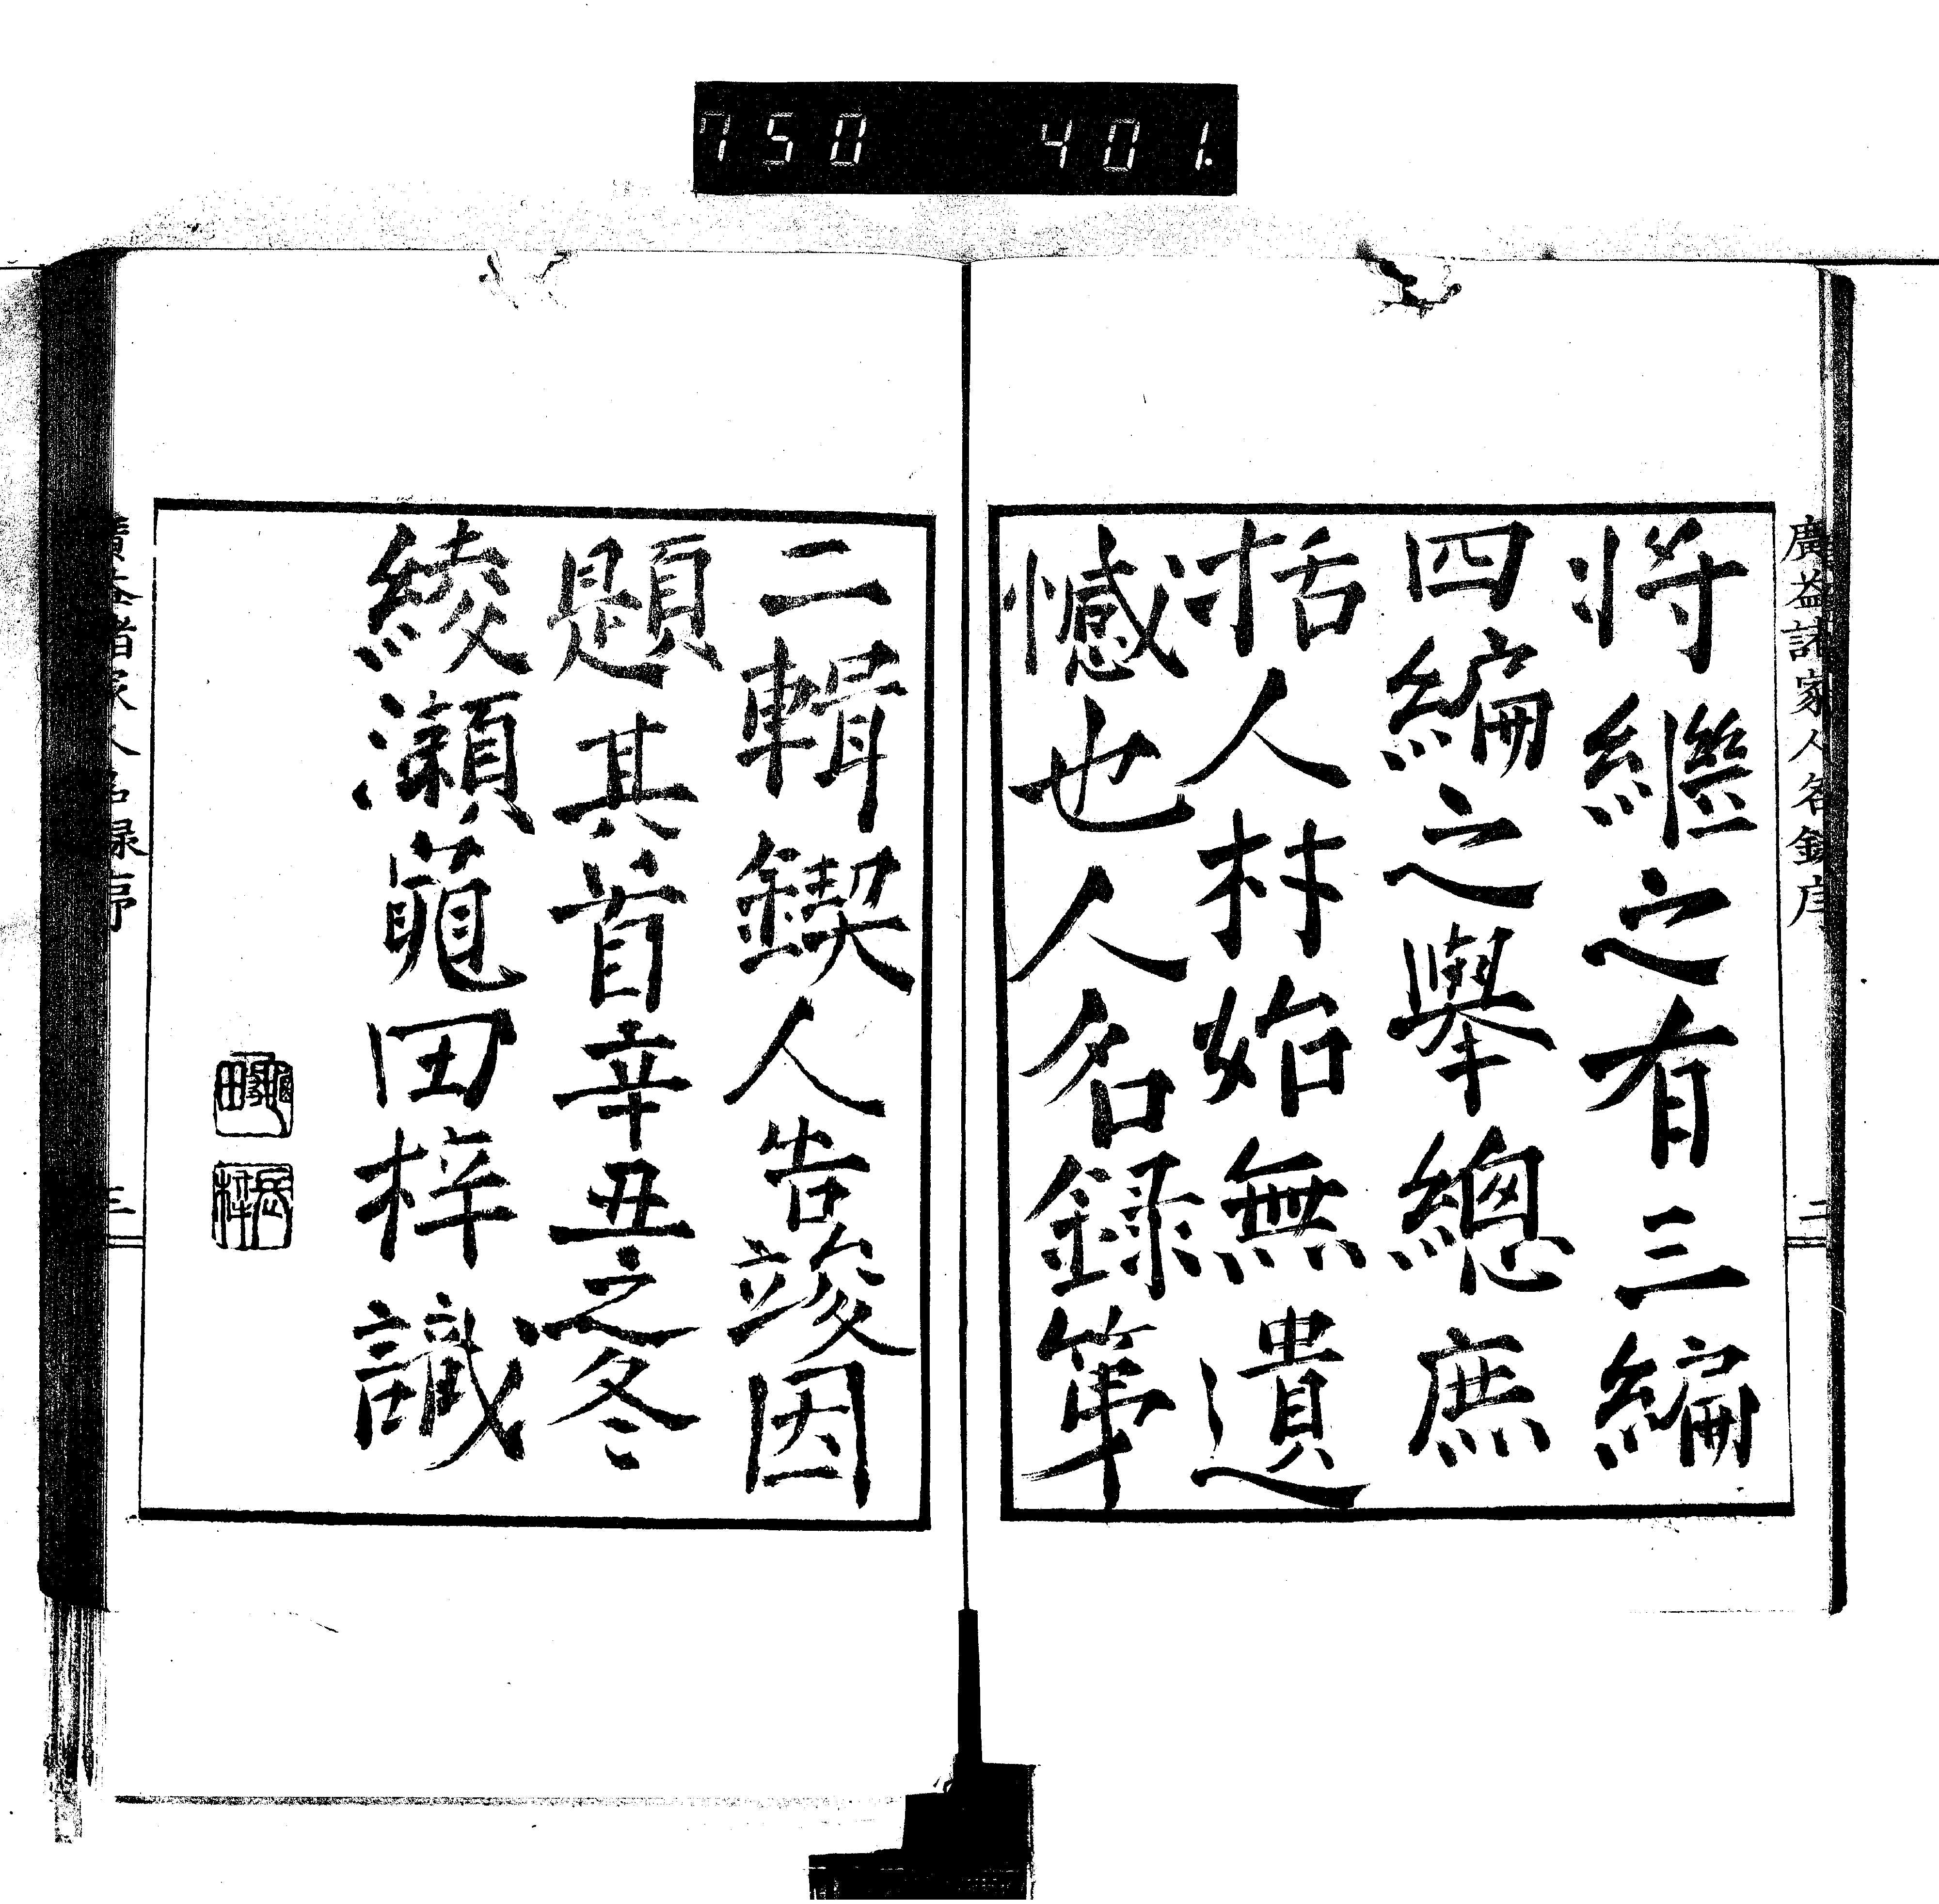 750 401.
廣益諸家人名錄序
二
将繼之有三編
四編之舉總庶
括人材始無遺
憾也人名録第
二輯鍥人告竣因
題其首辛丑之冬
綾瀬龜田梓識
三